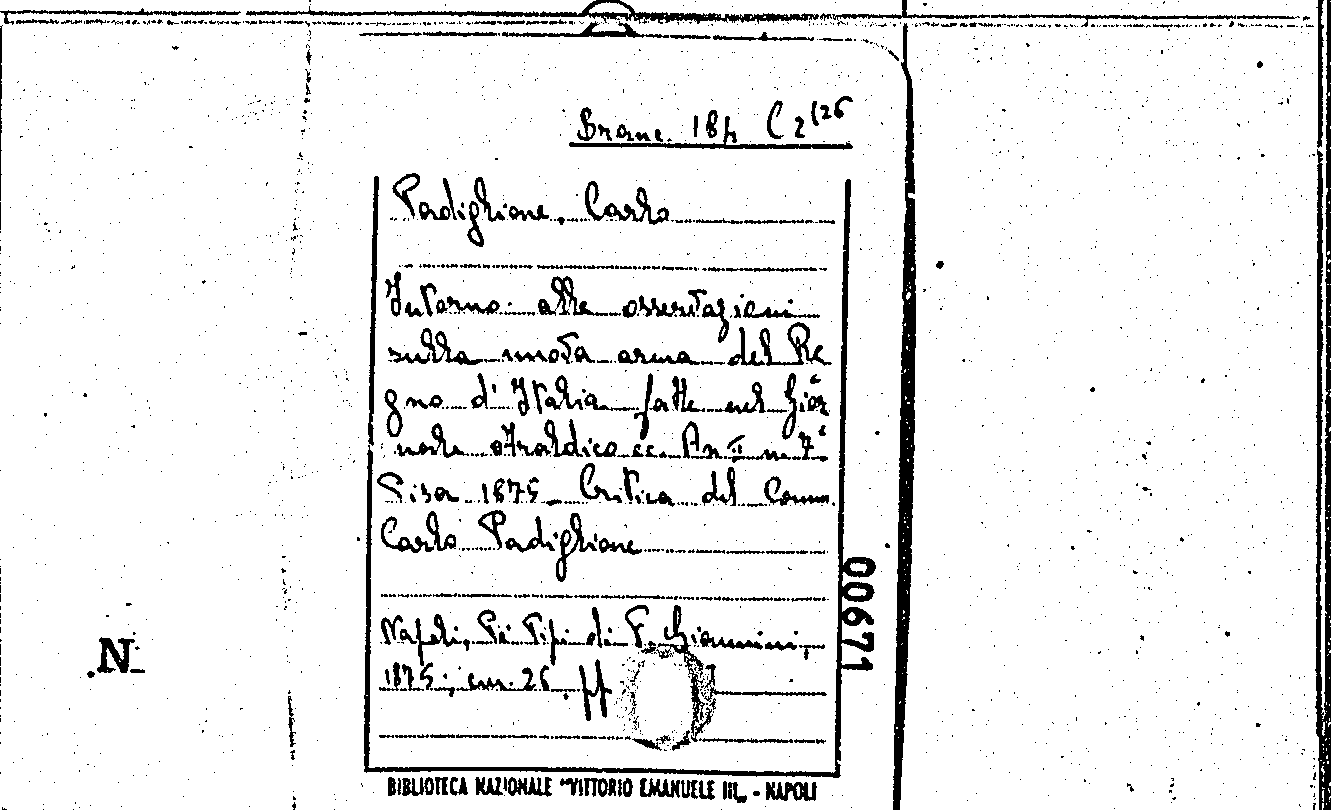 Branc. 184 C 2(26
Padiglione, Carlo
Intorno alle osservazioni
sulla nuova arma del Re
gno d'Italia fatte nel Gior
nale Araldico ec. An II n. 7º
Pisa 1875 - Critica del Comm.
Carlo Padiglione
Napoli, Pei Tipi di F. Giannini,
1875; cm. 26. pp
00671
N
BIBLIOTECA NAZIONALE "VITTORIO EMANUELE III„ - NAPOLI